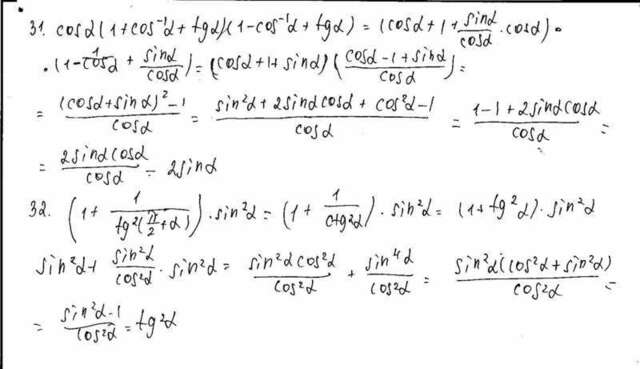 31. cosα(1+cos⁻¹α+tgα)(1-cos⁻¹α+tgα) = (cosα+1+sinα/cosα·cosα)·
·(1-1/cosα+sinα/cosα) = (cosα+1+sinα)((cosα-1+sinα)/cosα) =
= ((cosα+sinα)²-1)/cosα = (sin²α+2sinαcosα+cos²α-1)/cosα = (1-1+2sinαcosα)/cosα =
= 2sinαcosα/cosα = 2sinα
32. (1+1/tg²(π/2+α))·sin²α = (1+1/ctg²α)·sin²α = (1+tg²α)·sin²α
sin²α+sin²α/cos²α·sin²α = sin²αcos²α/cos²α + sin⁴α/cos²α = sin²α(cos²α+sin²α)/cos²α =
= sin²α-1/cos²α = tg²α